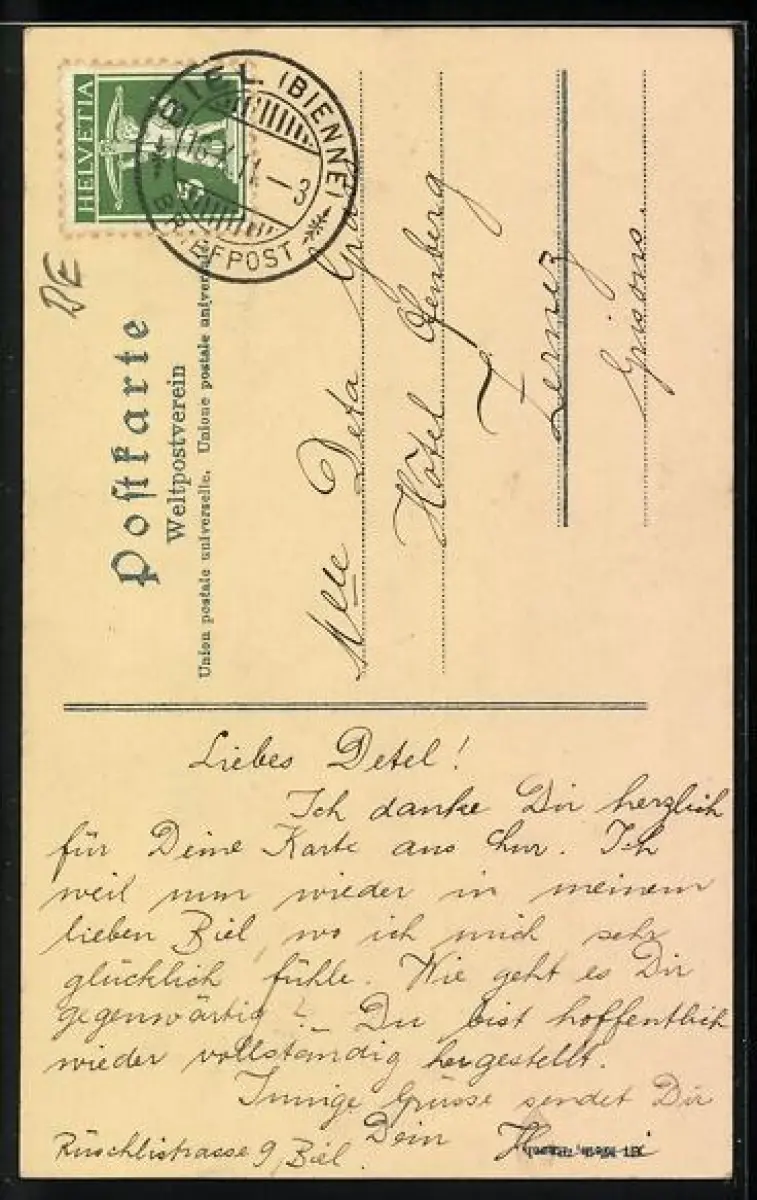 HELVETIA
5
BIEL (BIENNE)
-3
BRIEFPOST
DE
Postkarte
Weltpostverein
Union postale universelle. Unione postale universale
Mlle Deta
Hôtel Ofenberg
Zernez
Grisons.
Liebes Detel!
Ich danke Dir herzlich
für Deine Karte aus Chur. Ich
weil nun wieder in meinem
lieben Biel, wo ich mich sehr
glücklich fühle. Wie geht es Dir
gegenwärtig? Du bist hoffentlich
wieder vollständig hergestellt.
Innige Grüsse sendet Dir
Dein
Rüschlistrasse 9, Biel.